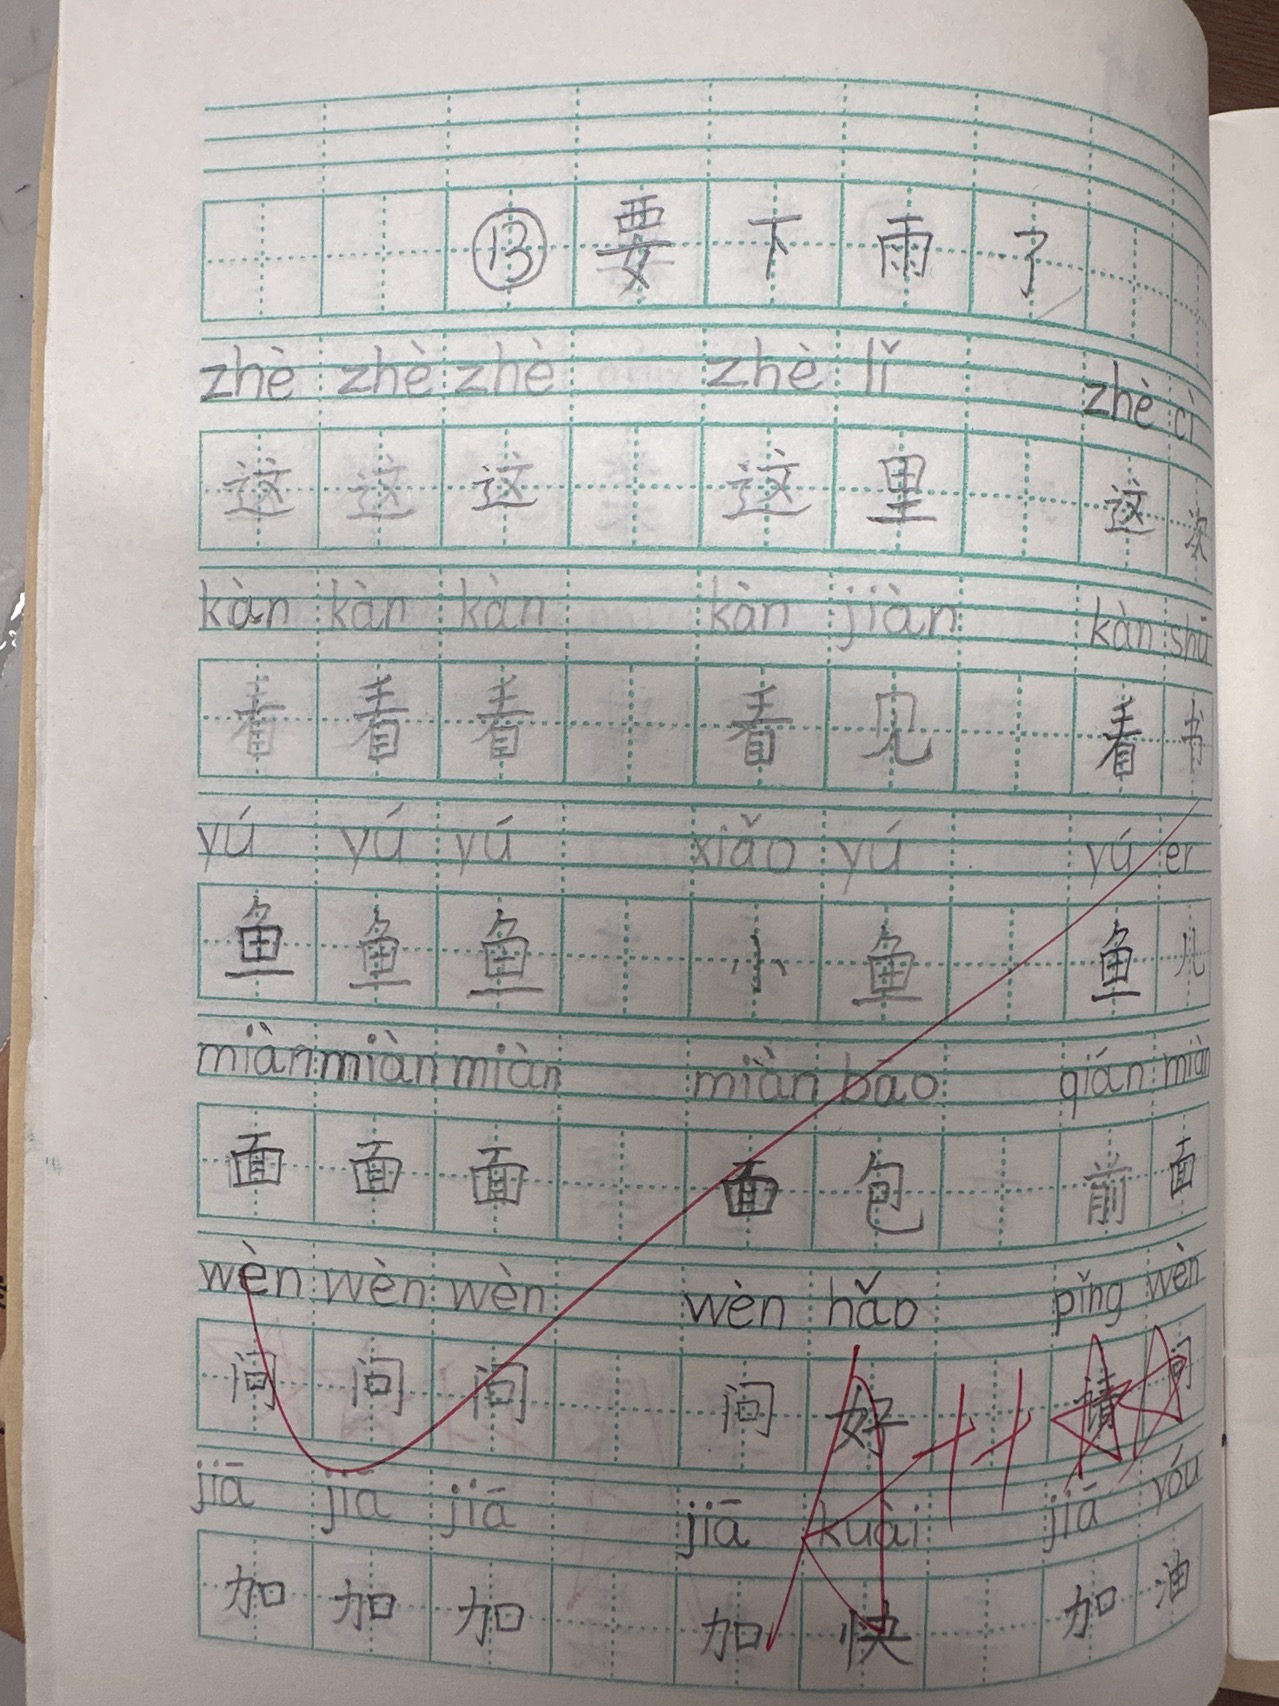 ⑬要下雨了
zhè zhè zhè zhè lǐ zhè cì
这 这 这 这 里 这 次
kàn kàn kàn kàn jiàn kàn shū
看 看 看 看 见 看 书
yú yú yú xiǎo yú yú er
鱼 鱼 鱼 小 鱼 鱼 儿
miàn miàn miàn miàn bāo qián miàn
面 面 面 面 包 前 面
wèn wèn wèn wèn hǎo pǐng wèn
问 问 问 问 好 請 问
jiā jiā jiā jiā kuài jiā yóu
加 加 加 加 快 加 油
A++